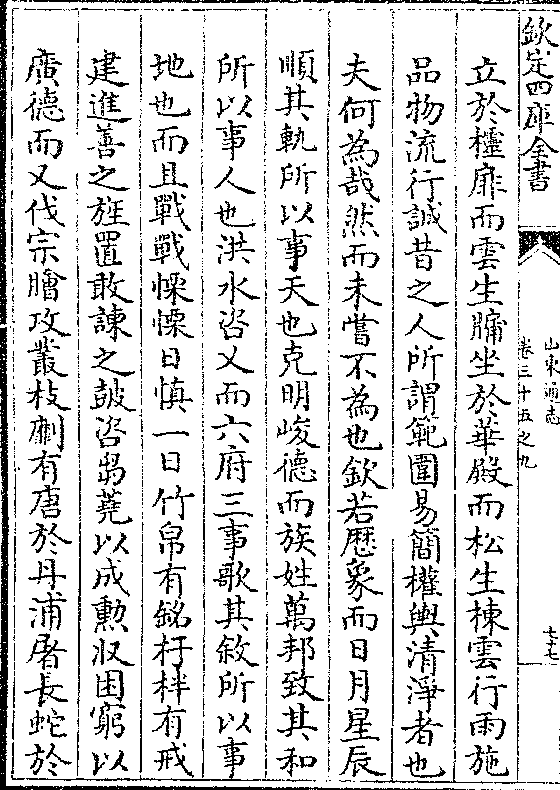 欽定四庫全書
山東通志
卷三十五之九
立於櫺扉而雲生牖坐於華殿而松生棟雲行雨施
品物流行誠昔之人所謂範圍易簡權輿清淨者也
夫何為哉然而未嘗不為也欽若歷象而日月星辰
順其軌所以事天也克明峻德而族姓萬邦致其和
所以事人也洪水咨乂而六府三事歌其敘所以事
地也而且戰戰慄慄日慎一日竹帛有銘杅柈有戒
建進善之旌置敢諫之鼓咨芻蕘以成勲収困窮以
廣德而又伐宗膾攻叢枝劘有唐於丹浦屠長蛇於